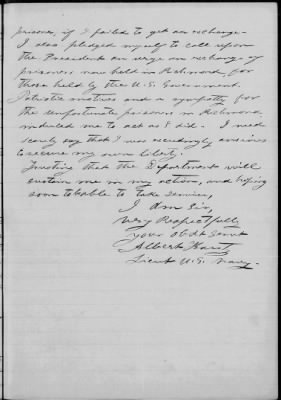 prison, if I failed to get an exchange -
I also pledged myself to call upon
the President an urge an exchange of
prisoners now held in Richmond, for
those held by the U.S. Government.
Patriotic motives and a sympathy for
the unfortunate prisoners in Richmond
induced me to act as I did. I need
scarcely say that I was exceedingly anxious
to secure my own liberty.
Trusting that the Department will
sustain me in my action, and hoping
soon to be able to take service,
I am Sir,
Very Respectfully
your Obdt Servt
Albert Kautz
Lieut U.S. Navy.